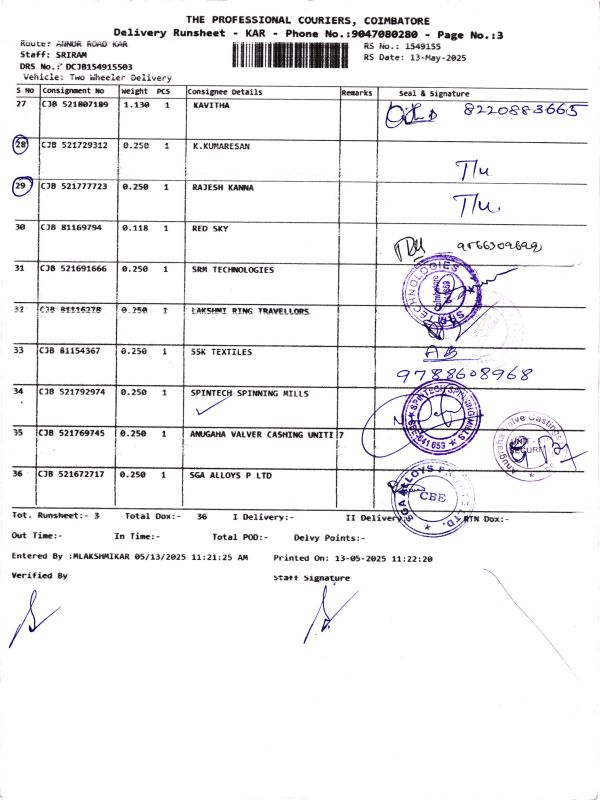 THE PROFESSIONAL COURIERS, COIMBATORE
Delivery Runsheet - KAR - Phone No.:9047080280 - Page No.:3
Route: ANNUR ROAD KAR
RS No.: 1549155
Staff: SRIRAM
RS Date: 13-May-2025
DRS No.: DCJB154915503
Vehicle: Two Wheeler Delivery
S No Consignment No Weight PCS Consignee Details Remarks Seal & Signature
27 CJB 521807189 1.130 1 KAVITHA 8220883665
28 CJB 521729312 0.250 1 K.KUMARESAN
29 CJB 521777723 0.250 1 RAJESH KANNA
30 CJB 81169794 0.118 1 RED SKY
31 CJB 521691666 0.250 1 SRM TECHNOLOGIES
SRM TECHNOLOGIES
32 CJB 81116278 0.250 1 LAKSHMI RING TRAVELLORS
33 CJB 81154367 0.250 1 SSK TEXTILES AB
9788608968
34 CJB 521792974 0.250 1 SPINTECH SPINNING MILLS
SPINTECH SPINNING MILLS
CBE-641 659
35 CJB 521769745 0.250 1 ANUGAHA VALVER CASHING UNITI 7
Anugraha Valve Castings
36 CJB 521672717 0.250 1 SGA ALLOYS P LTD
CBE
Tot. Runsheet:- 3 Total Dox:- 36 I Delivery:- II Delivery RTN Dox:-
Out Time:- In Time:- Total POD:- Delvy Points:-
Entered By :MLAKSHMIKAR 05/13/2025 11:21:25 AM Printed On: 13-05-2025 11:22:20
Verified By Staff Signature